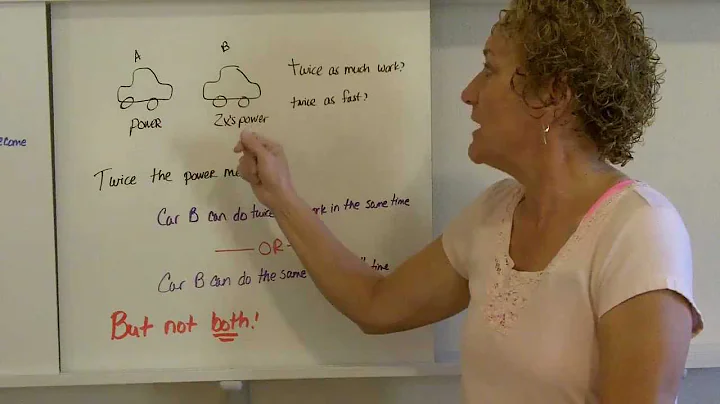 ecome
A
B
twice as much work?
twice as fast?
POWER
2x's power
Twice the power
Car B can do twice in the same time
OR
Car B can do the same time
But not both!